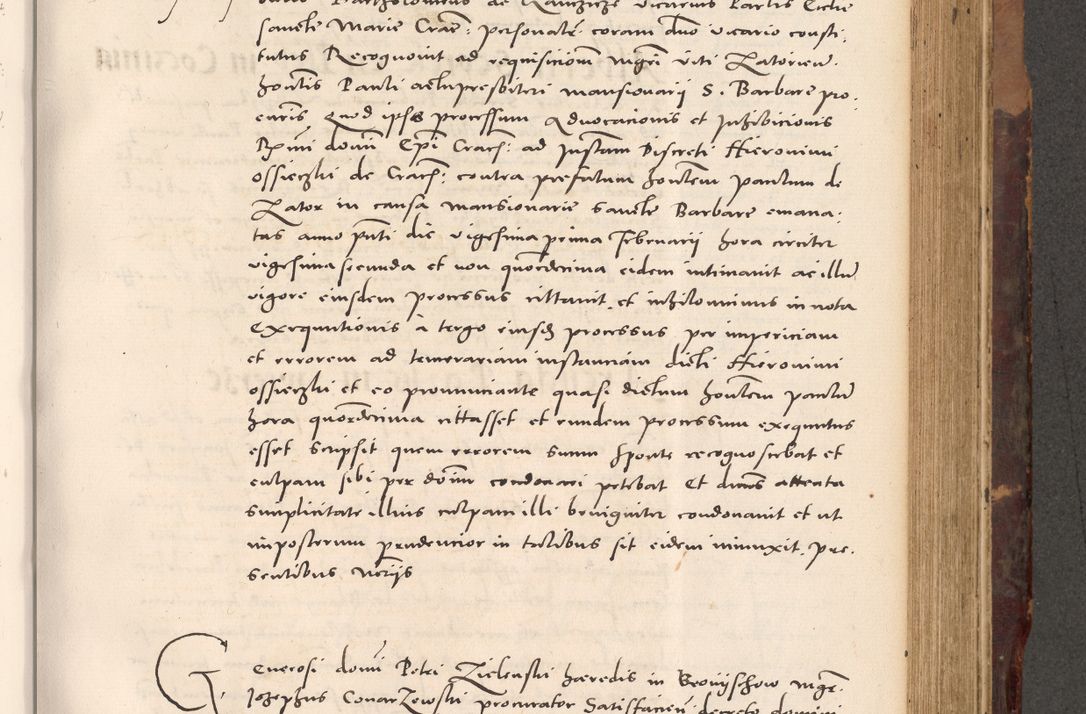 Bartholomeus de vicarius Partis Eiclie
sancte Marie Crac: personalr. coram dno vicario consti,
tutus Recognovit ad requisicionem mgri viti Zatorien:
honestis Pauli archipresbiteri mansionarii S. Barbare pro,
curis Quod ipse processum Advocacionis et Inhibicionis
Rmi domi Epi Cracn: ad Instam Discreti Hieronimi
Ossieczki de Crach: contra prefatum honestem paulum de
Zator in causa mansionarie sancte Barbare emana,
tas anno pnti die vigesima prima Februarii hora circiter
vigesima secunda et non quordecima eidem intimavit ac illu
vigore eiusdem processus cittavit et nihilominus in nota
Exequutionis à tergo eiusd processus per impericiam
et errorem ad temerariam instanciam dicti Hieronimi
ossieczki et eo pronunciante quasi dictum honestem paulu
hora quordecima cittasset et eundem processum exequutus
esset scripsit quem errorem suum sponte recognoscebat et
culpam sibi per domin condonari petebat Et dnus attenta
simplicitate illius culpam illi benigniter condonavit et ut
imposterum prudencior in talibus sit eidem iniunxit. pre,
sentibus Notriis
Generosi domi Petri Zielenski hæredis in mgr.
Iosephus Conarzewski procurator Satisfacien decreto domini